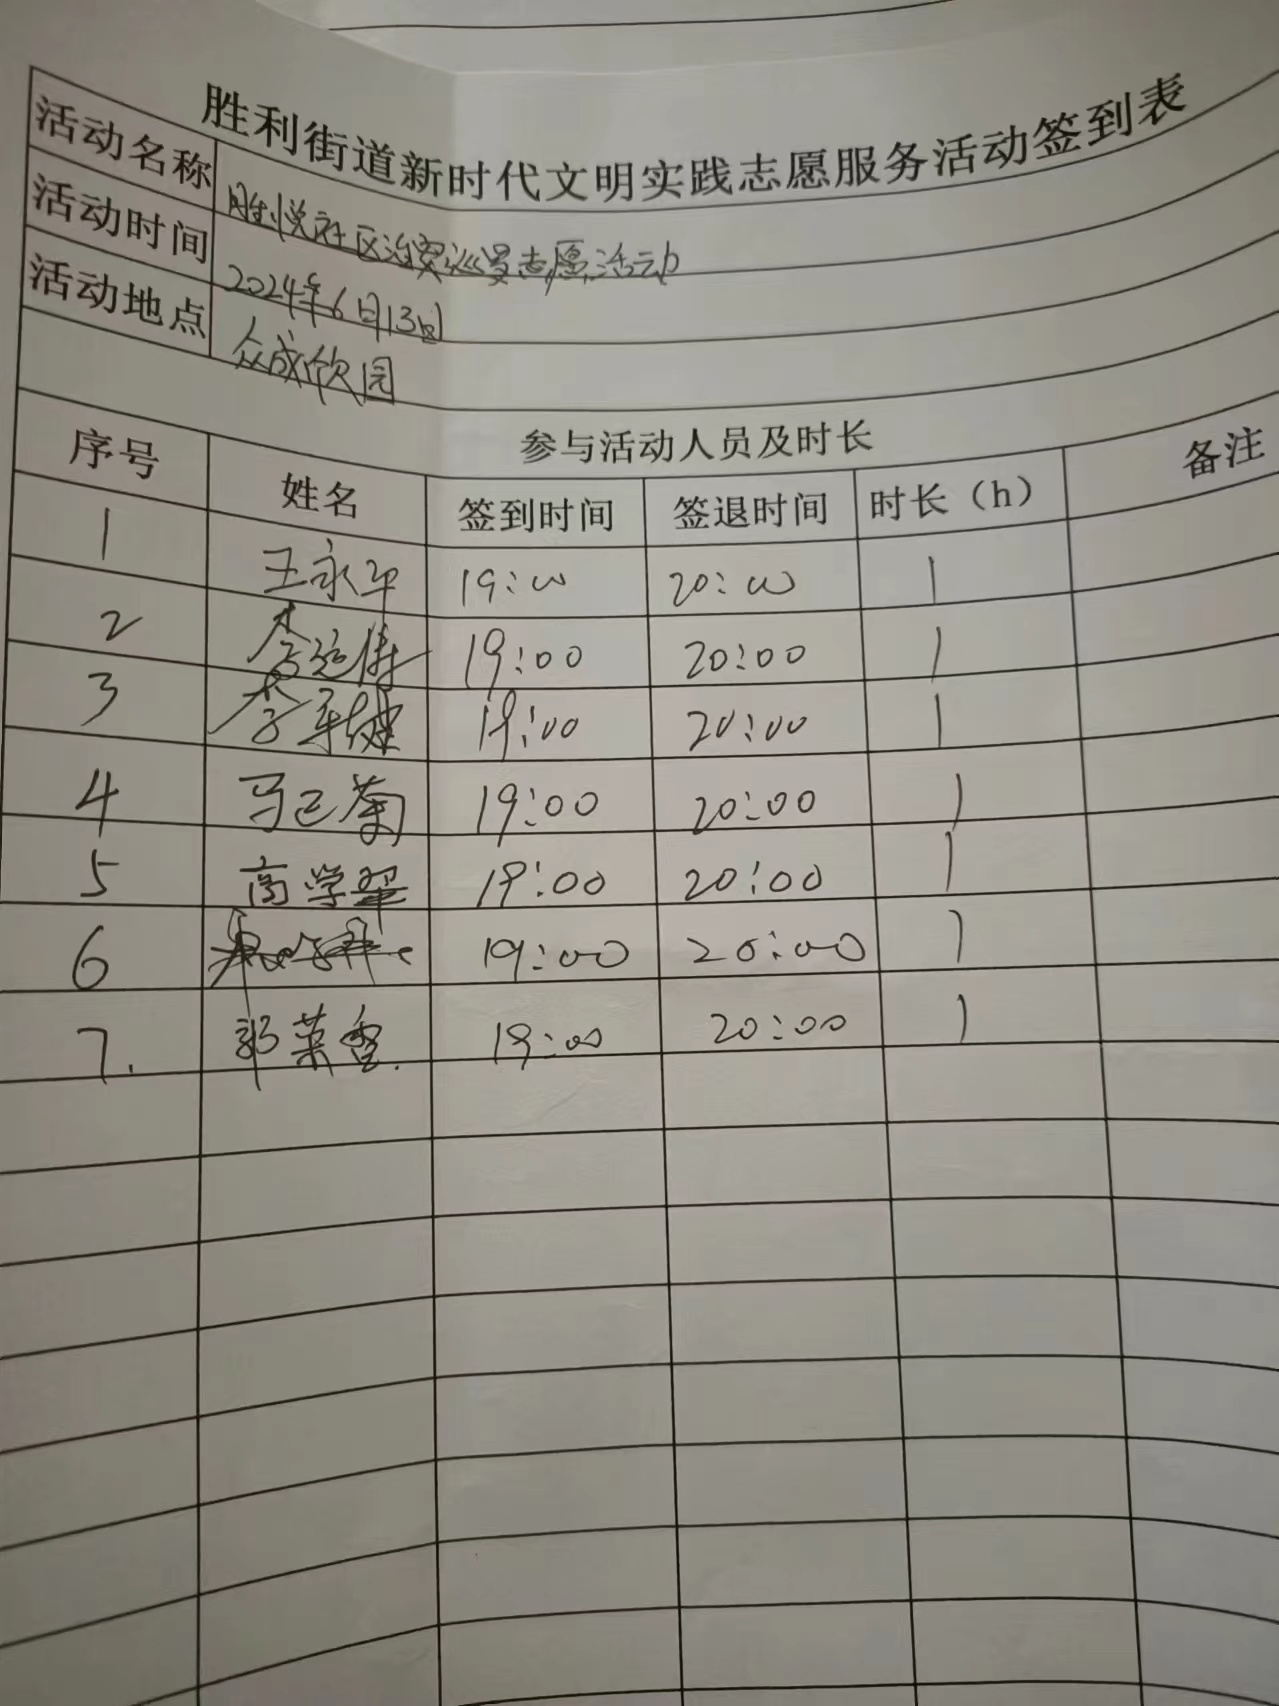 胜利街道新时代文明实践志愿服务活动签到表
活动名称 胜悦社区治安巡逻志愿活动
活动时间 2024年6月13日
活动地点 众成欣园
参与活动人员及时长
序号 姓名 签到时间 签退时间 时长（h） 备注
1 王永平 19:00 20:00 1
2 19:00 20:00 1
3 19:00 20:00 1
4 19:00 20:00 1
5 高学翠 19:00 20:00 1
6 19:00 20:00 1
7. 郭菜香 19:00 20:00 1